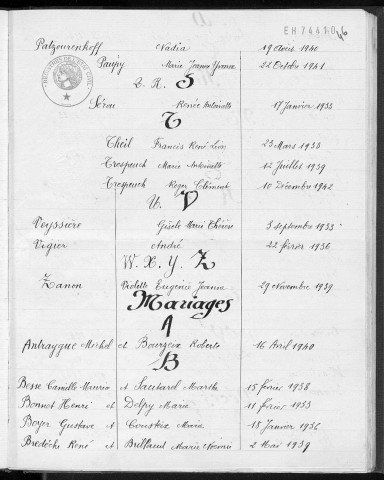 EH 74410 46
Patzourenkoff Nadia 19 Août 1940
Paujty Marie Jeanne Yvonne 22 Octobre 1941
Q. R. S
Sérou Renée Antoinette 17 Janvier 1933
T
Theil Francis René Léon 23 Mars 1935
Trespeuch Marie Antoinette 12 Juillet 1939
Trespeuch Roger Clément 10 Décembre 1942
U. V
Veyssière Gisèle Marie Thérèse 3 septembre 1933
Vigier André 22 février 1936
W. X. Y. Z
Zanon Violette Eugénie Jeanne 29 Novembre 1939
Mariages
A
Antraygue Michel et Bourzeix Roberte 16 Avril 1940
B
Besse Camille Maurice et Sautarel Marthe 15 février 1938
Bonnot Henri et Delpy Maria 11 février 1933
Boyer Gustave et Coustix Maria 18 Janvier 1936
Bredèche René et Brillaud Marie Noémie 2 Mai 1939